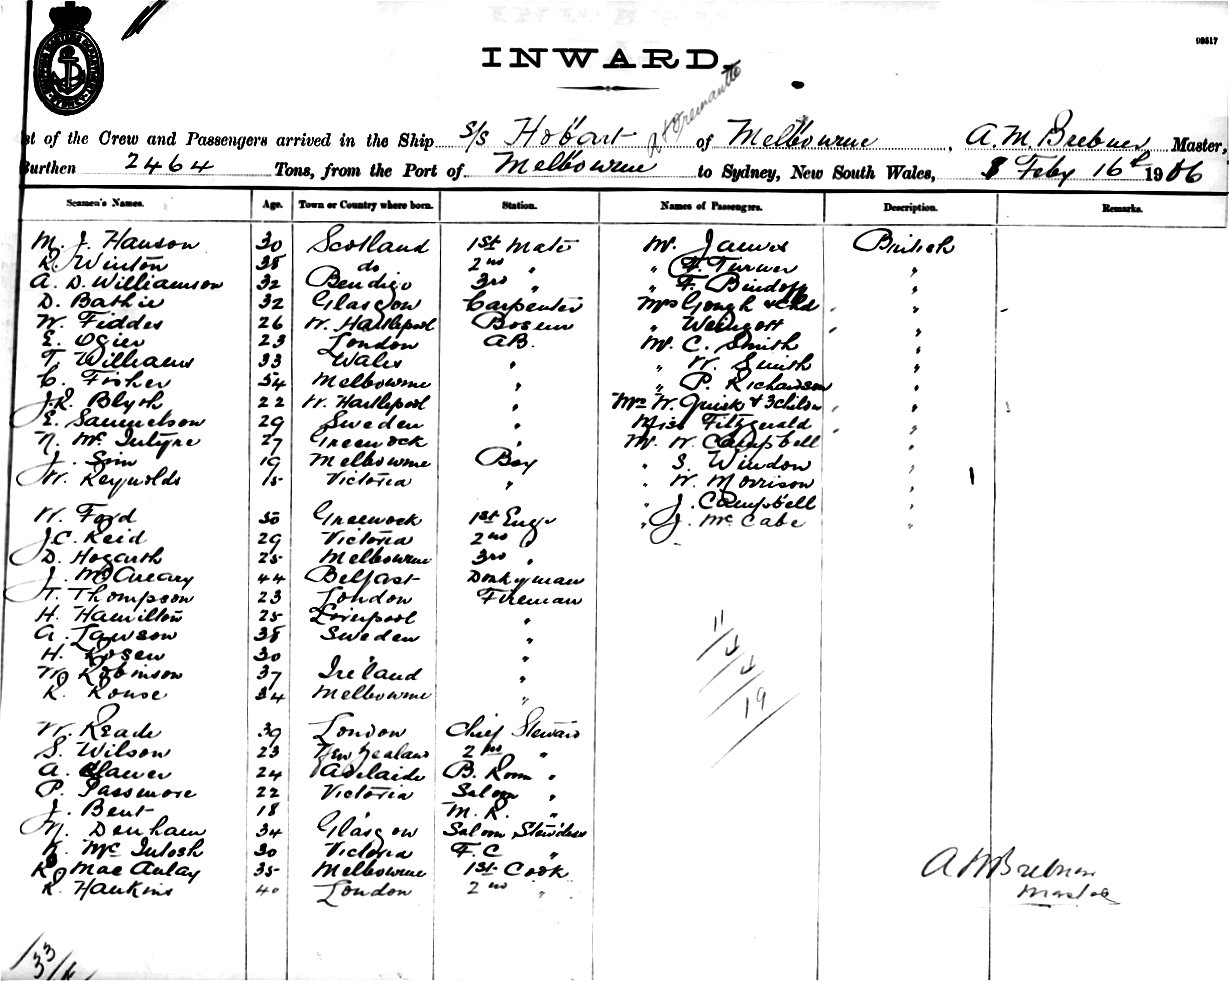 INWARD.
08517
st of the Crew and Passengers arrived in the Ship S/S Hobart of Melbourne, A. M. Brebner, Master,
Burthen 2464 Tons, from the Port of Melbourne to Sydney, New South Wales, Feby 16th 1906
Seamen's Names. Age. Town or Country where born. Station. Names of Passengers. Description. Remarks.
M. J. Hanson 30 Scotland 1st Mate Mr. James British
R. Winton 38 do 2nd " " F. Turner "
A. D. Williamson 32 Bendigo 3rd " " F. Bindoff "
D. Bathie 32 Glasgow Carpenter Mrs Gough & Chd "
W. Fiddes 26 W. Hartlepool Bosun " "
E. Ogier 23 London AB. Mr. C. Smith "
T. Williams 33 Wales " " W. Smith "
C. Fisher 54 Melbourne " " P. Richardson "
J. R. Blyth 22 W. Hartlepool " Mrs W. Quirk & 3 childn "
E. Samuelson 29 Sweden " Miss Fitzgerald "
N. McIntyre 27 Greenock " Mr. W. Campbell "
J. Sim 19 Melbourne Boy " S. Windon "
W. Reynolds 15 Victoria " " W. Morrison "
" J. Campbell "
W. Ford 50 Greenock 1st Engr " J. McCabe "
J. C. Reid 29 Victoria 2nd "
D. Hogarth 25 Melbourne 3rd "
J. McCreary 44 Belfast Donkyman
T. Thompson 23 London Fireman
H. Hamilton 25 Liverpool "
A. Lawson 38 Sweden "
H. Rosen 30 " "
W. Robinson 37 Ireland "
R. Rouse 34 Melbourne "
W. Reade 39 London Chief Steward
S. Wilson 23 New Zealand 2nd "
A. 24 Adelaide B. Room "
P. Passmore 22 Victoria Saloon "
J. Bent 18 " M. R. "
M. Denham 34 Glasgow Saloon Stewdess
K. McIntosh 30 Victoria F. C "
R. MacAulay 35 Melbourne 1st Cook
R. Hankins 40 London 2nd "
11
4
4
19
A M Brebner
Master
33